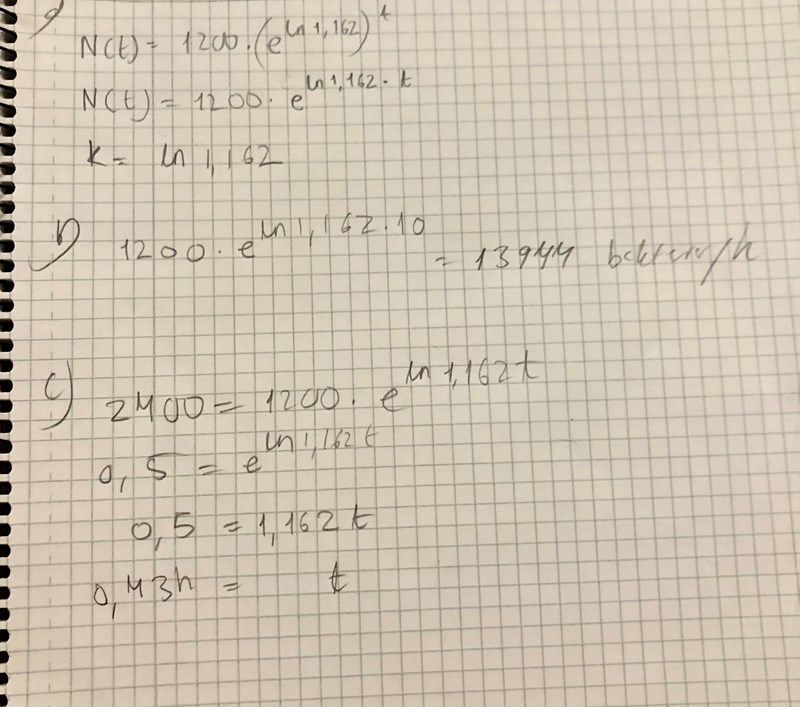 N(t) = 1200·(e^ln 1,162)^t
N(t) = 1200· e^ln 1,162· t
k = ln 1,162
b) 1200· e^ln 1,162·10 = 13944
c) 2400 = 1200· e^ln 1,162t
0,5 = e^ln 1,162t
0,5 = 1,162t
0,43h = t